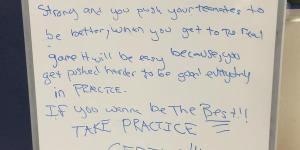 Strong and you push your teamates to
be better, when you get to the real
game it will be easy because, you
get pushed harder to be good everyday
in PRACTICE.
If you wanna be The Best!!
TAKE PRACTICE